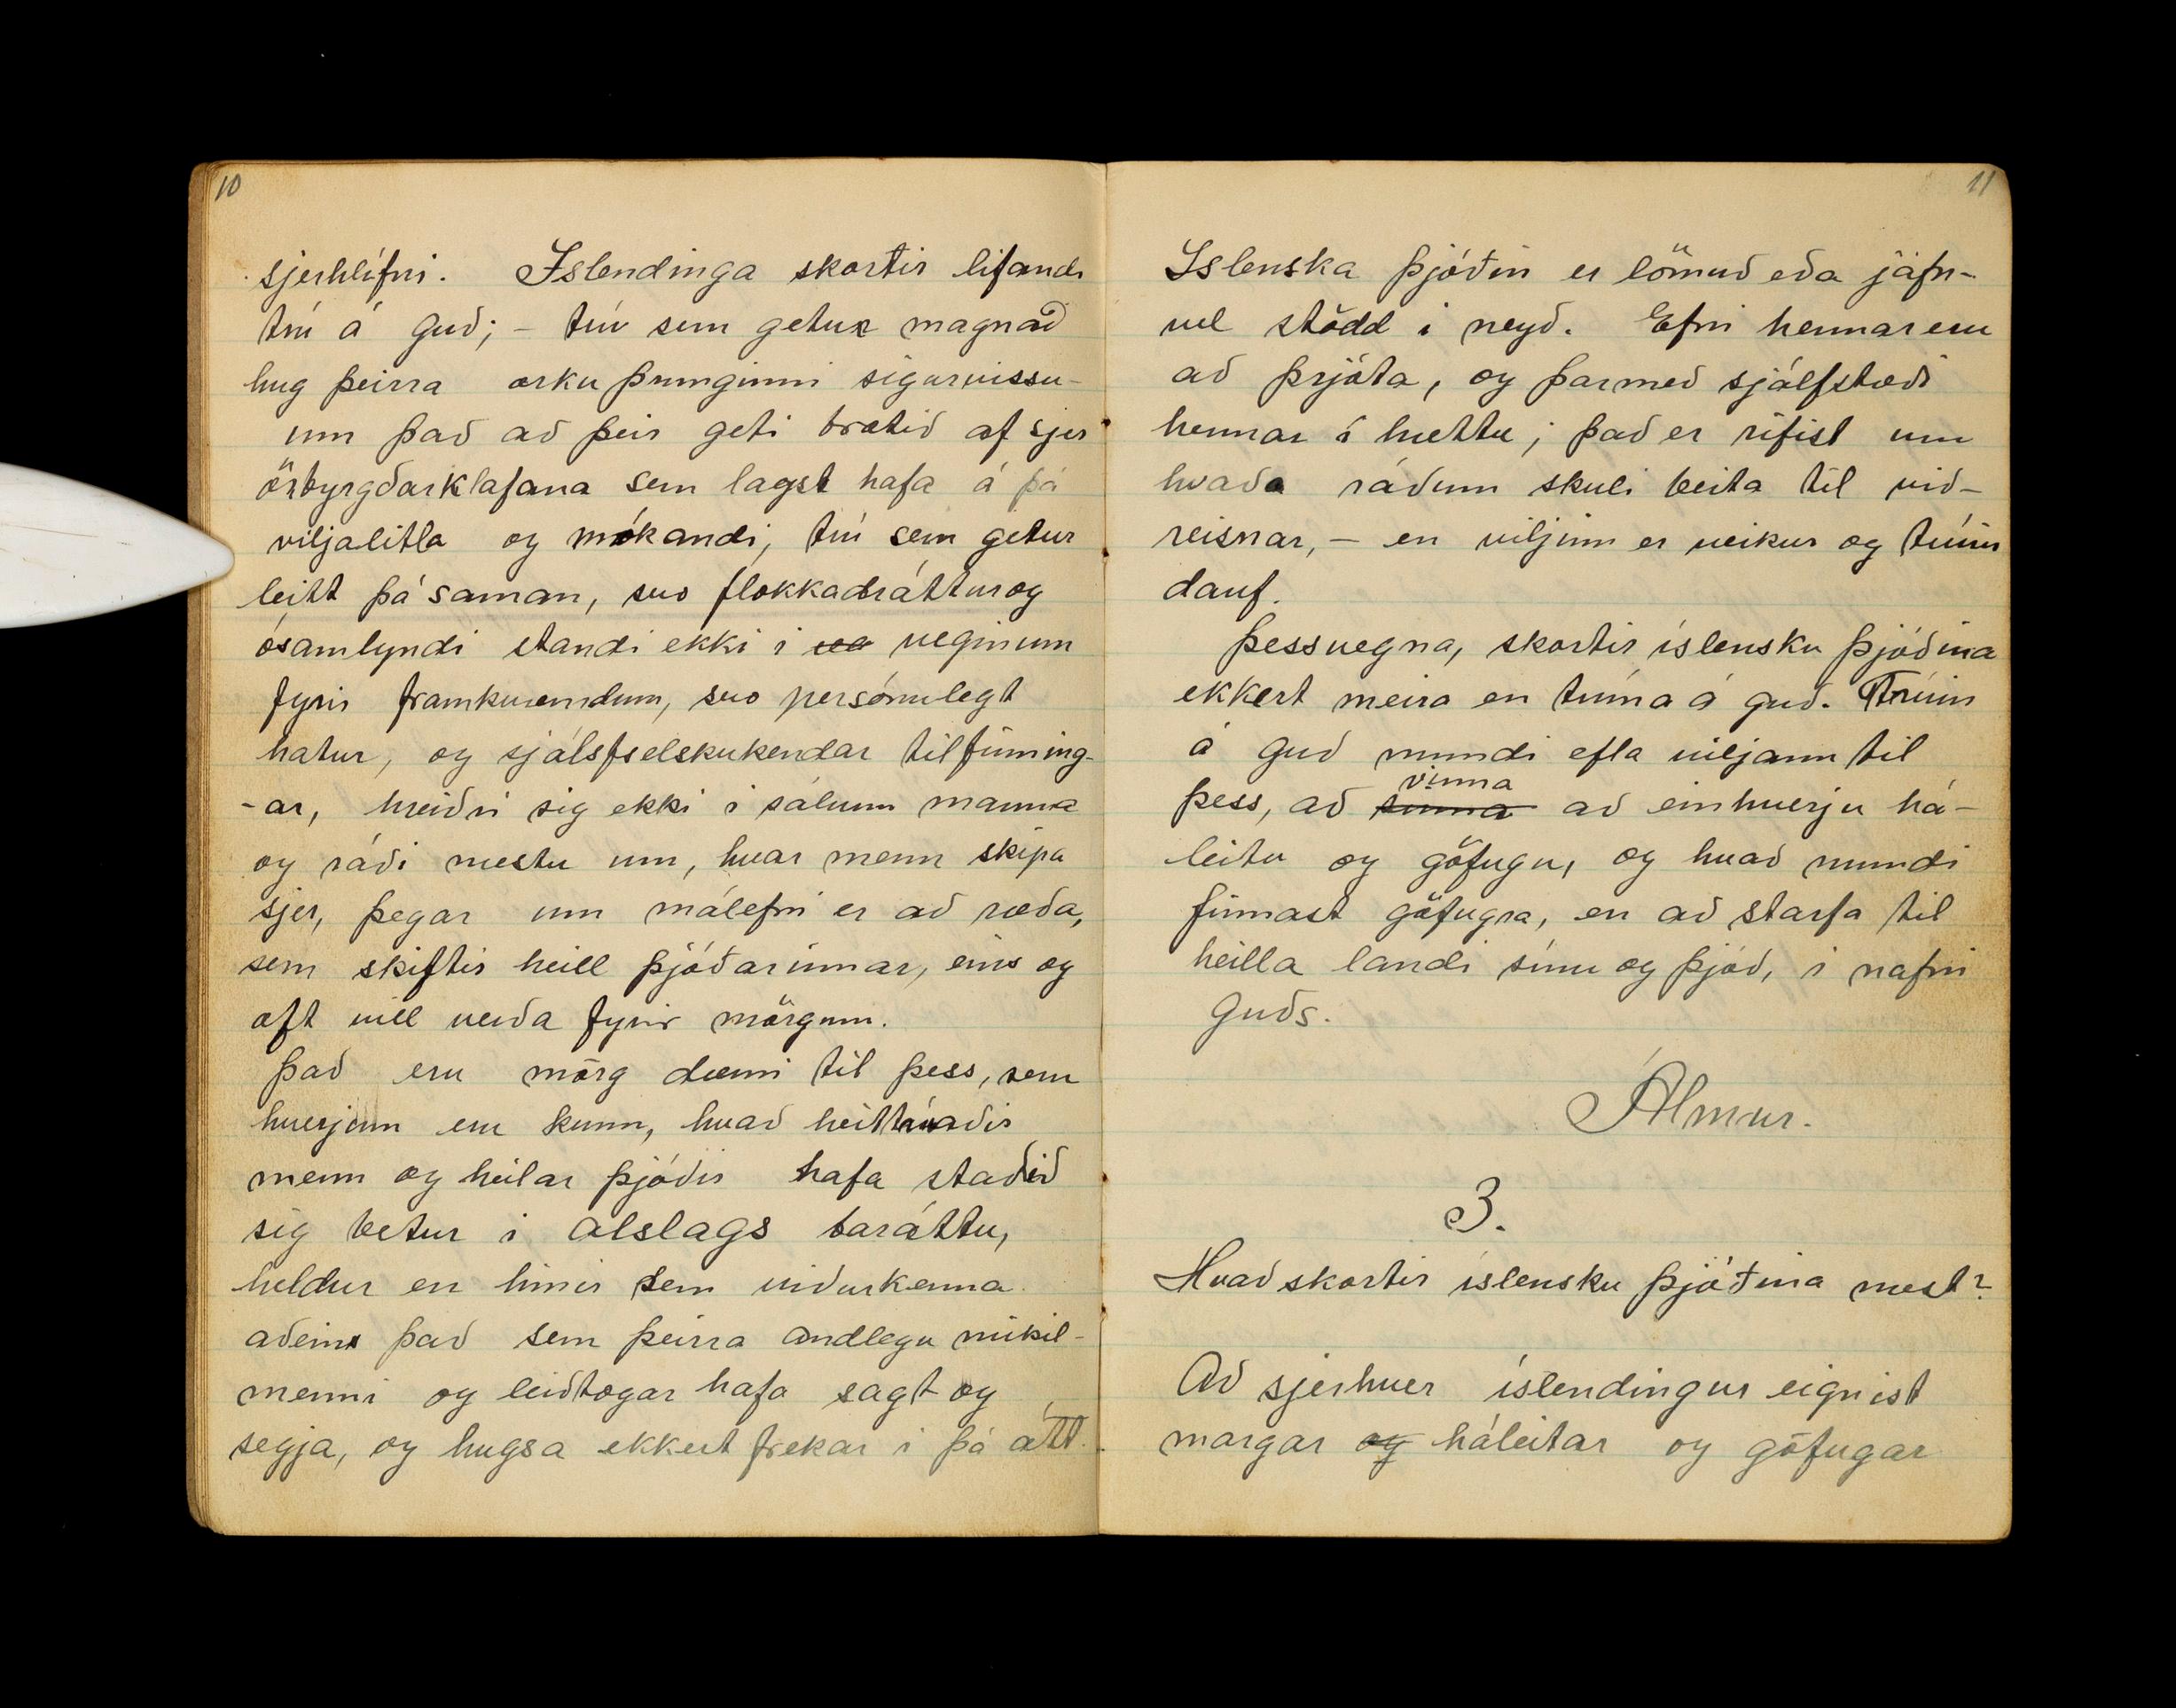 10
sjerhlífni. Íslendinga skortir lifandi
trú á guð; - trú sem getur magnað
hug þeirra orku þrunginni sigurvissu-
um það að þeir geti brotið af sjer
örbyrgðarklafana sem lagst hafa á þá
viljalitla og mókandi, trú sem getur
leitt þá saman, svo flokkadráttur og
ósamlyndi standi ekki i veginum
fyrir framkvæmdum, svo persónulegt
hatur, og sjálsfselskukendar tilfinning-
-ar, hreiðri sig ekki i sálum manna
og ráði mestu um, hvar menn skipa
sjer, þegar um málefni er að ræða,
sem skiftir heill þjóðarinnar, eins og
oft vill verða fyrir mörgum.
Það eru mörg dæmi til þess, sem
hverjum eru kunn, hvað heittrúaðir
menn og heilar þjóðir hafa staðið
sig betur i alslags baráttu,
heldur en hinir sem viðurkenna
aðeins það sem þeirra andlegu mikil-
menni og leiðtogar hafa sagt og
segja, og hugsa ekkert frekar i þá átt.
11
Íslenska þjóðin er lömuð eða jafn-
vel stödd i neyð. Efni hennar eru
að þrjóta, og þarmeð sjálfstæði
hennar í hættu; það er rifist um
hvaða ráðum skuli beita til við-
reisnar, - en viljinn er veikur og trúin
dauf.
Þessvegna, skortir íslensku þjóðina
ekkert meira en trúna á guð. Trúin
á guð mundi efla viljann til
þess, að vinna að einhverju há-
leitu og göfugu, og hvað mundi
finnast göfugra, en að starfa til
heilla landi sínu og þjóð, i nafni
Guðs.
Álmur.
3.
Hvað skortir íslensku þjóðina mest?
Að sjerhver íslendingur eignist
margar og háleitar og göfugar